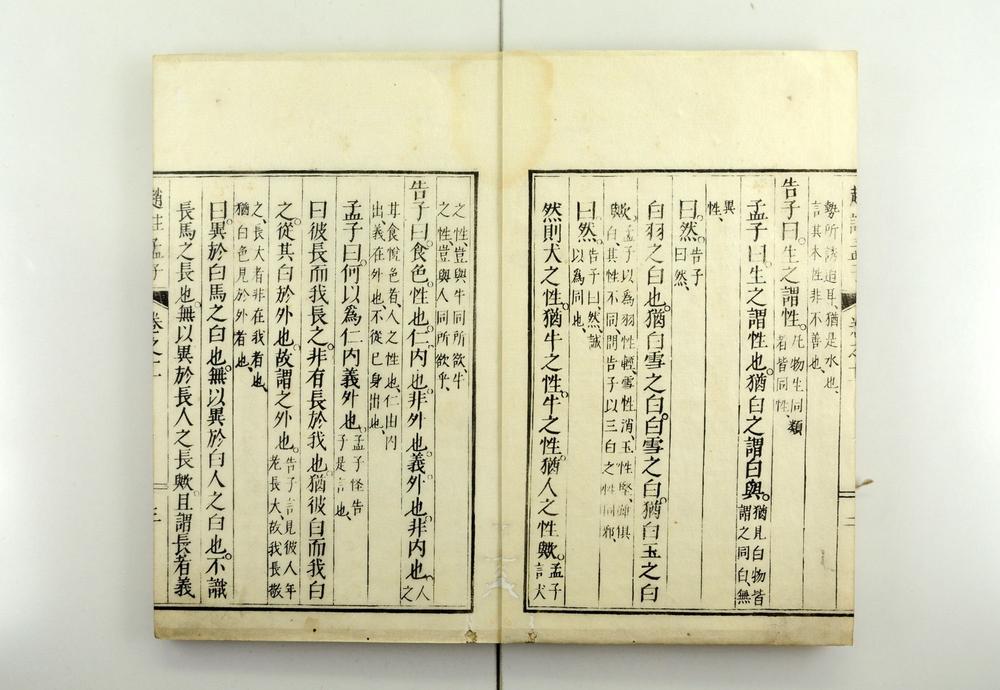 勢所誘迫耳、猶是水也、
言其本性非不善也、
告子曰。生之謂性。凡物生同類
者皆同性、
孟子曰。生之謂性也。猶白之謂白與。猶見白物皆
謂之同白、無
異
性、
曰。然。告子
曰然、
白羽之白也。猶白雪之白。白雪之白。猶白玉之白
歟。孟子以爲羽性輕、雪性消、玉性堅、雖俱
白其性不同、問告子以三白之性同邪、
曰。然。告子曰然、誠
以爲同也、
然則犬之性。猶牛之性。牛之性。猶人之性歟。孟子
言犬
之性、豈與牛同所欲、牛
之性、豈與人同所欲乎、
告子曰。食色。性也。仁內也。非外也。義外也。非内也。人
之
甘食悅色者、人之性也、仁由内
出、義在外也、不從已身出也、
孟子曰。何以爲仁内義外也。孟子怪告
子是言也、
曰彼長而我長之。非有長於我也。猶彼白而我白
之。從其白於外也。故謂之外也。告子言見彼人年
老長大、故我長敬
之、長大者非在我者也、
猶白色見於外者也、
曰。異於白馬之白也。無以異於白人之白也。不識
長馬之長也。無以異於長人之長歟。且謂長者義
趙註孟子
卷之十一
三